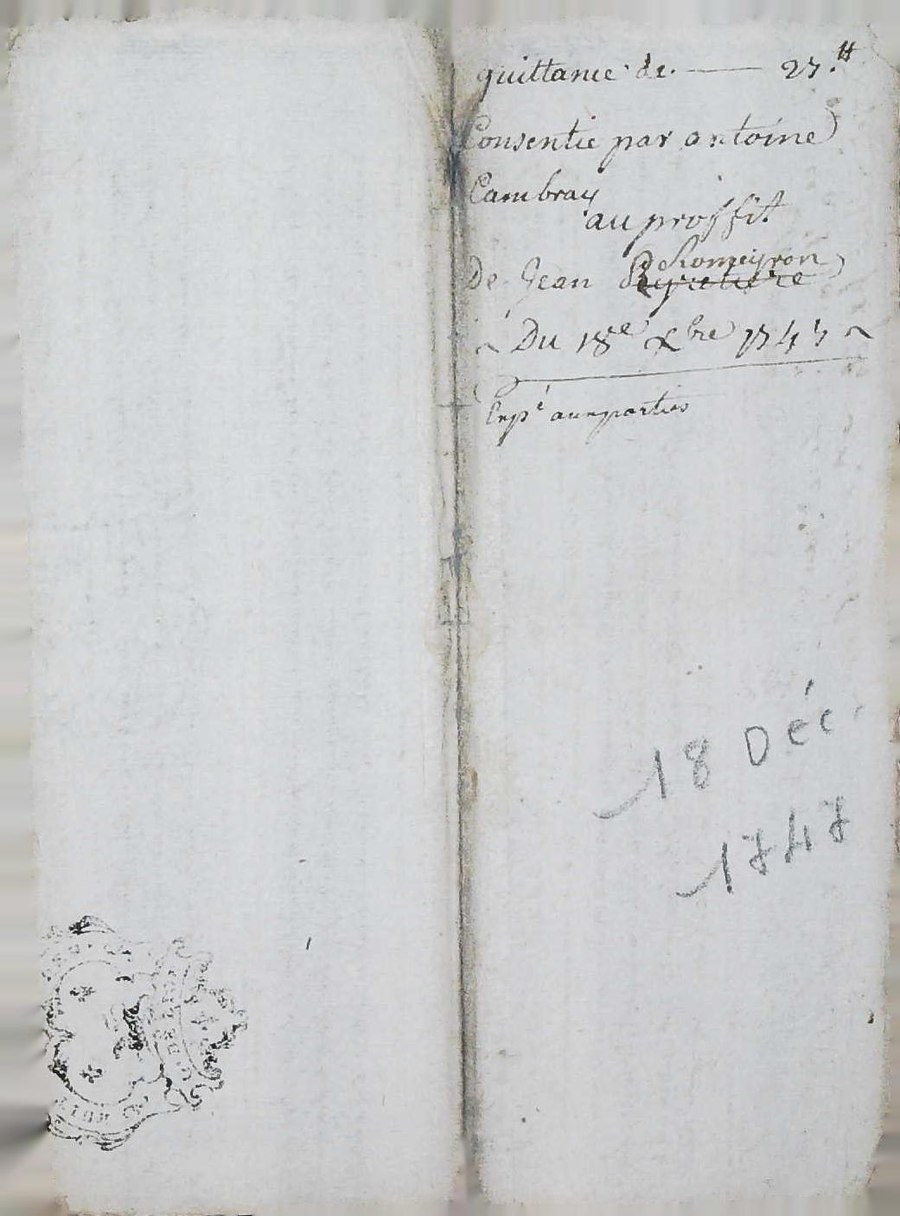 quittance de. — 27.tt
Consentie par antoine
Cambray
au proffit
De Jean Romeyron
Du 18e xbre 1747
Expé aux parties
18 Déc.
1747